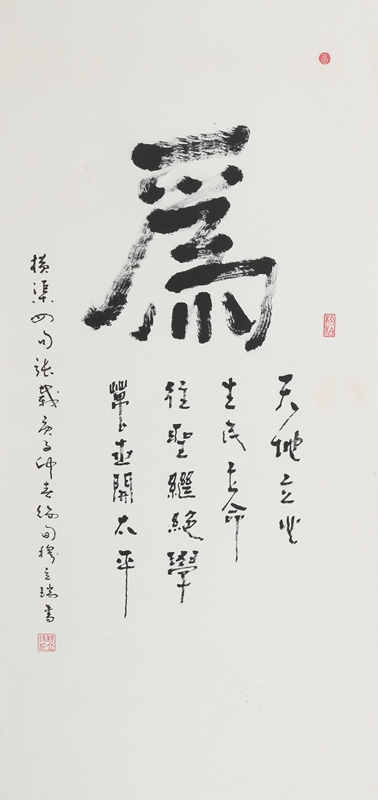 爲
天地立心
生民立命
往聖繼絕學
萬世開太平
橫渠四句張載庚子仲春旬立瑞書